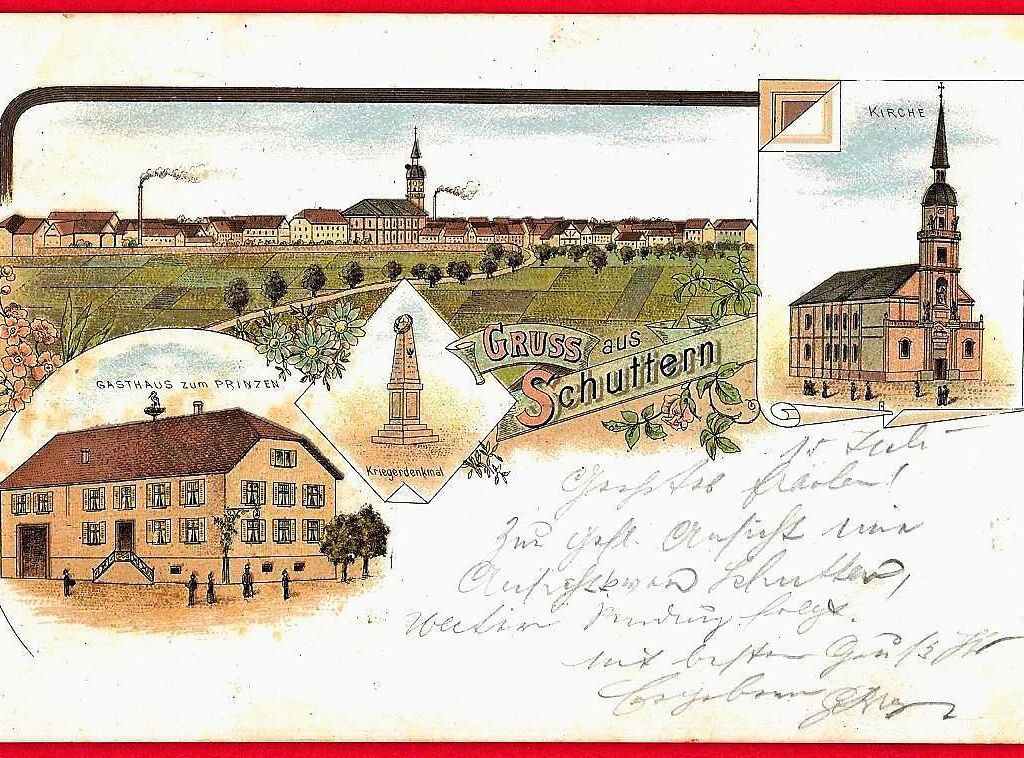 KIRCHE
GRUSS aus
Schuttern
GASTHAUS zum PRINZEN
Kriegerdenkmal
15 Juli
Geehrtes Fräulein!
Zur gefl. Ansicht eine
Ansicht von Schuttern,
weitere Sendung folgt.
mit besten Gruß Ihr
Ergebener